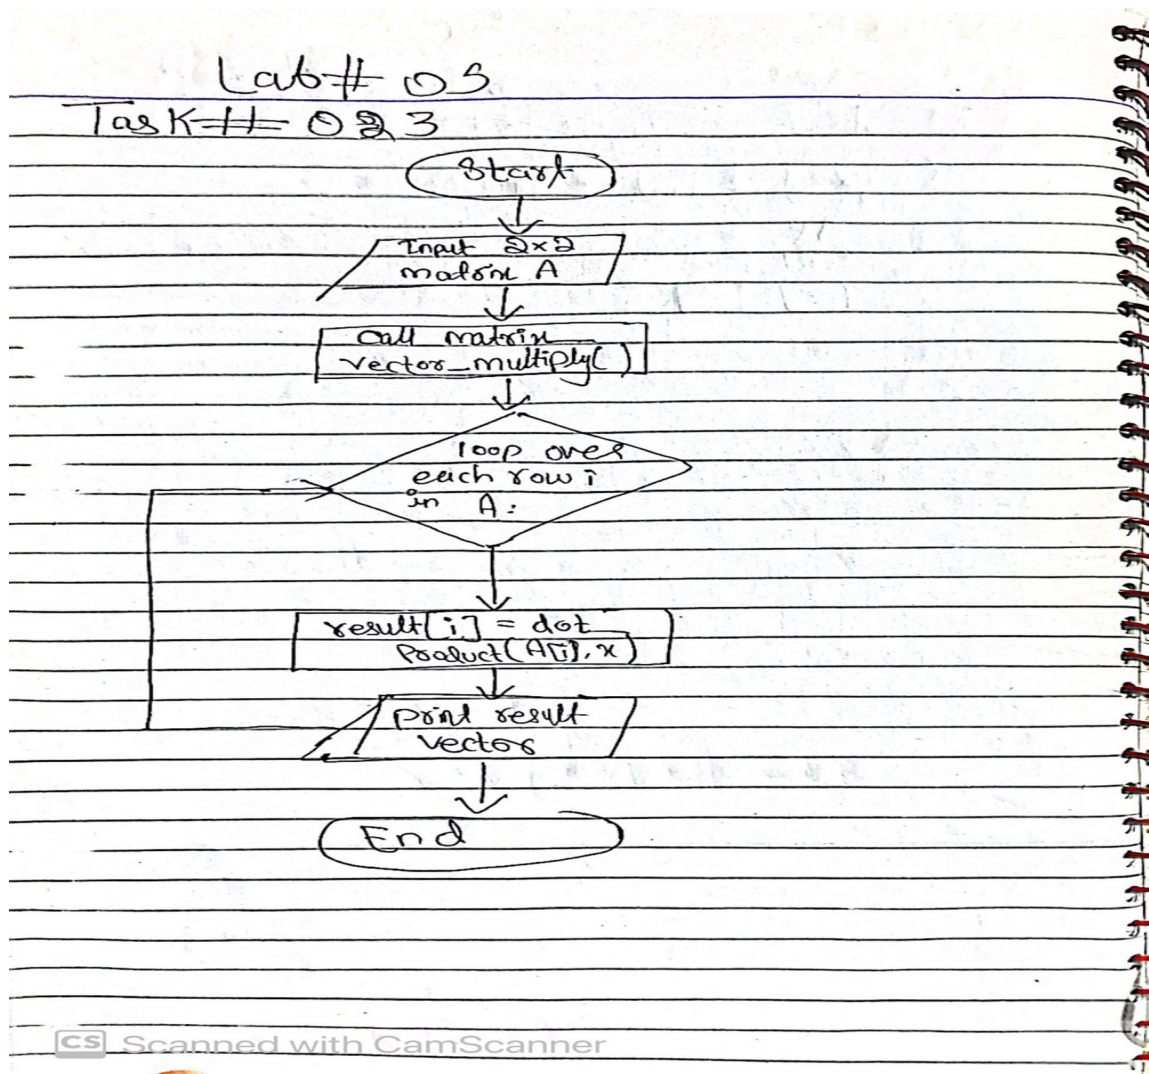 Lab# 03
Task# 03
Start
Input 2×2
matrix A
Call matrix
vector_multiply( )
loop over
each row i
in A:
result[i] = dot
Product(A[i], x)
print result
vector
End
CS Scanned with CamScanner